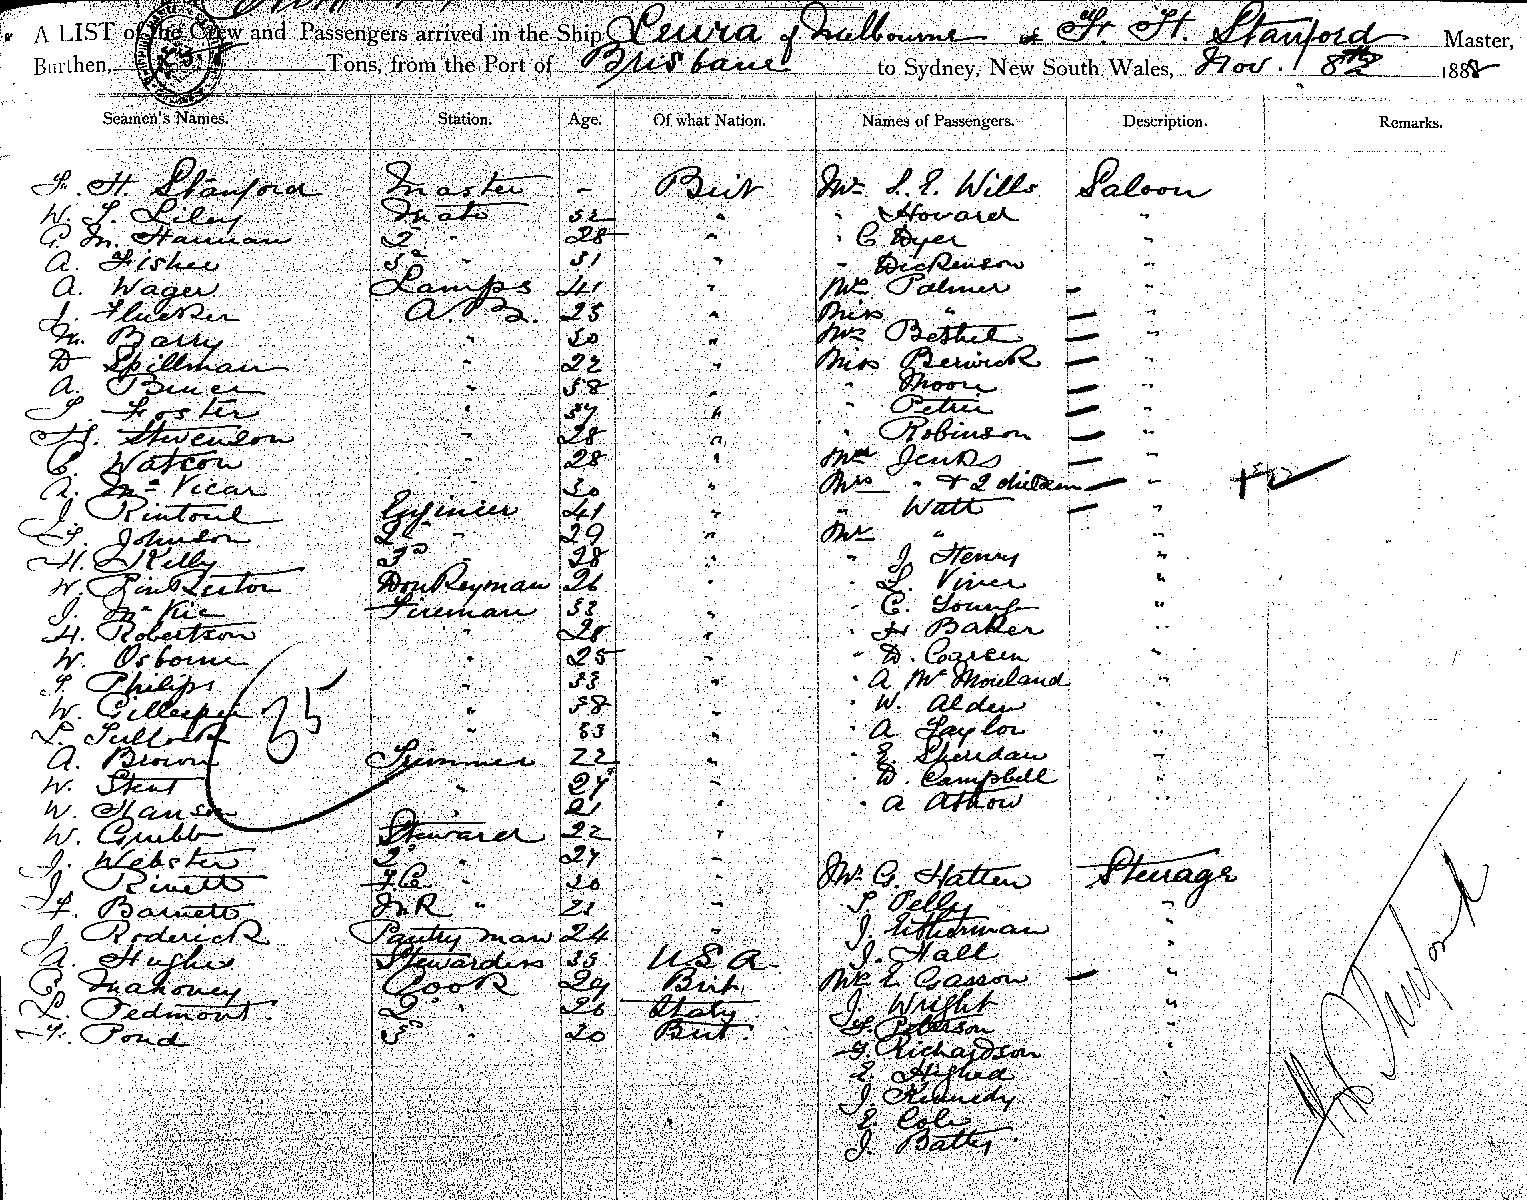 A LIST of the Crew and Passengers arrived in the Ship Leura of Melbourne F. H. Stanford Master,
Burthen, Tons, from the Port of Brisbane to Sydney, New South Wales, Nov. 8th 1888
Seamen's Names. Station. Age. Of what Nation. Names of Passengers. Description. Remarks.
F. H. Stanford Master - Brit Mr S. E. Wills Saloon
W. L. Liley Mate 32 " " Howard "
C. M. Hannan 2 " 28 " " C Dyer "
A. Fisher 3 31 " " Dickenson "
A. Wager Lamps 41 " Mrs Palmer - "
J. Flucker A. B. 25 " Miss " - "
M. Barry " 30 " Mrs Bethel - "
D Spillman " 22 " Miss Berwick - "
A. " 38 " " Moore - "
T. Foster " 37 " " Petrie - "
H. Stevenson " 28 " " Robinson - "
C. Watson " 28 " Mrs Jenks - "
A. McVicar " 30 " Mrs " + 2 children - "
J. Rintoul Engineer 41 " " Watt - "
F. Johnson 2 " 29 " Mr " "
H. Kelly 3 28 " " J. Henry "
W. Pinkerton Donkeyman 26 " " L. Viner "
J. McKie Fireman 33 " " C. Young "
H. Robertson " 28 " " H Baker "
W. Osborne " 25 " " D. "
T. Philips " 33 " " A W Moreland "
W. Gillespie " 38 " " W. Alden "
L. Tullock " 33 " " A Taylor "
A. Brown Trimmer 22 " " E. Sheridan "
W. Stent " 27 " " D. Campbell "
W. Hanson 21 " " A "
35
W. Grubb Steward 22 "
J. Webster 2 " 27 "
J. Rivett F.C. 30 " Mr G. Hatten Steerage
F. Barnett M.R " 21 " T. Pelly "
J Roderick Pantry man 24 " J. "
A. Hughes Stewardess 35 U.S.A. J. Hall "
C. Mahoney Cook 29 Brit Mrs E Gasson - "
L. Pedmont 2 " 26 Italy J. Wright "
F. Pond 3 " 20 Brit F. Peterson "
F. Richardson "
E. "
J. Kennedy "
E. Cole "
J. Batty "
F H Stanford